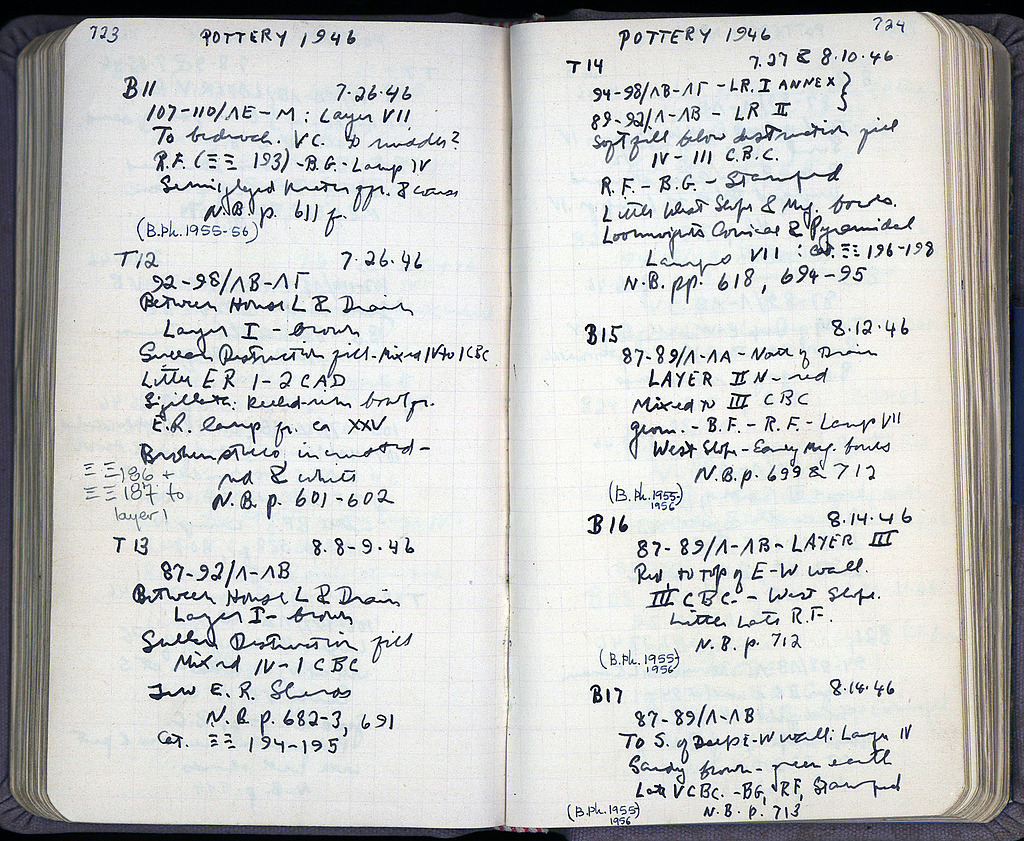 723
POTTERY 1946
B11 7.26.46
107-110/ΛΕ-Μ : Layer VII
To bedrock. VC. to middle?
R.F. (ΞΞ 193) - B.G. - Lamp IV
Semiglazed & coarse
N.B. p. 611 f.
(B.Ph. 1955-56)
T12 7.26.46
92-98/ΛΒ-ΛΓ
Between House L & Drain
Layer I - brown
Sullan Destruction fill - Mixed IV to I CBC
Little ER 1-2 CAD
Sigillata: fr.
E.R. lamp fr. ca XXV
Broken stucco incrusted -
red & white
ΞΞ 186 +
ΞΞ 187 to
layer 1
N.B. p. 601-602
T13 8.8-9.46
87-92/Λ-ΛΒ
Between House L & Drain
Layer I - brown
Sullan Destruction fill
Mixed IV-I CBC
Few E.R. Sherds
N.B. p. 682-3, 691
Cat. ΞΞ 194-195
724
POTTERY 1946
T14 7.27 & 8.10.46
94-98/ΛΒ-ΛΓ - LR. I ANNEX }
89-92/Λ-ΛΒ - LR II
Soft fill below destruction fill
IV-III C.B.C.
R.F. - B.G. - Stamped
Little West Slope & Meg. bowls.
Loomweights Conical & Pyramidal
Lamps VII : Cat. ΞΞ 196-198
N.B. pp. 618, 694-95
B15 8.12.46
87-89/Λ-ΛΑ - North of Drain
LAYER II N - red
Mixed to III CBC
Geom. - B.F. - R.F. - Lamp VII
West Slope - Early Meg. bowls
N.B. p. 699 & 712
(B.Ph. 1955-
1956)
B16 8.14.46
87-89/Λ-ΛΒ - LAYER III
Red, to top of E-W wall.
III C BC - West Slope.
Little Late R.F.
N.B. p. 712
(B.Ph. 1955)
1956
B17 8.14.46
87-89/Λ-ΛΒ
To S. of Deep E-W wall: Layer IV
Sandy brown - green earth
Late V CBC. - BG, RF, Stamped
N.B. p. 713
(B.Ph. 1955)
1956